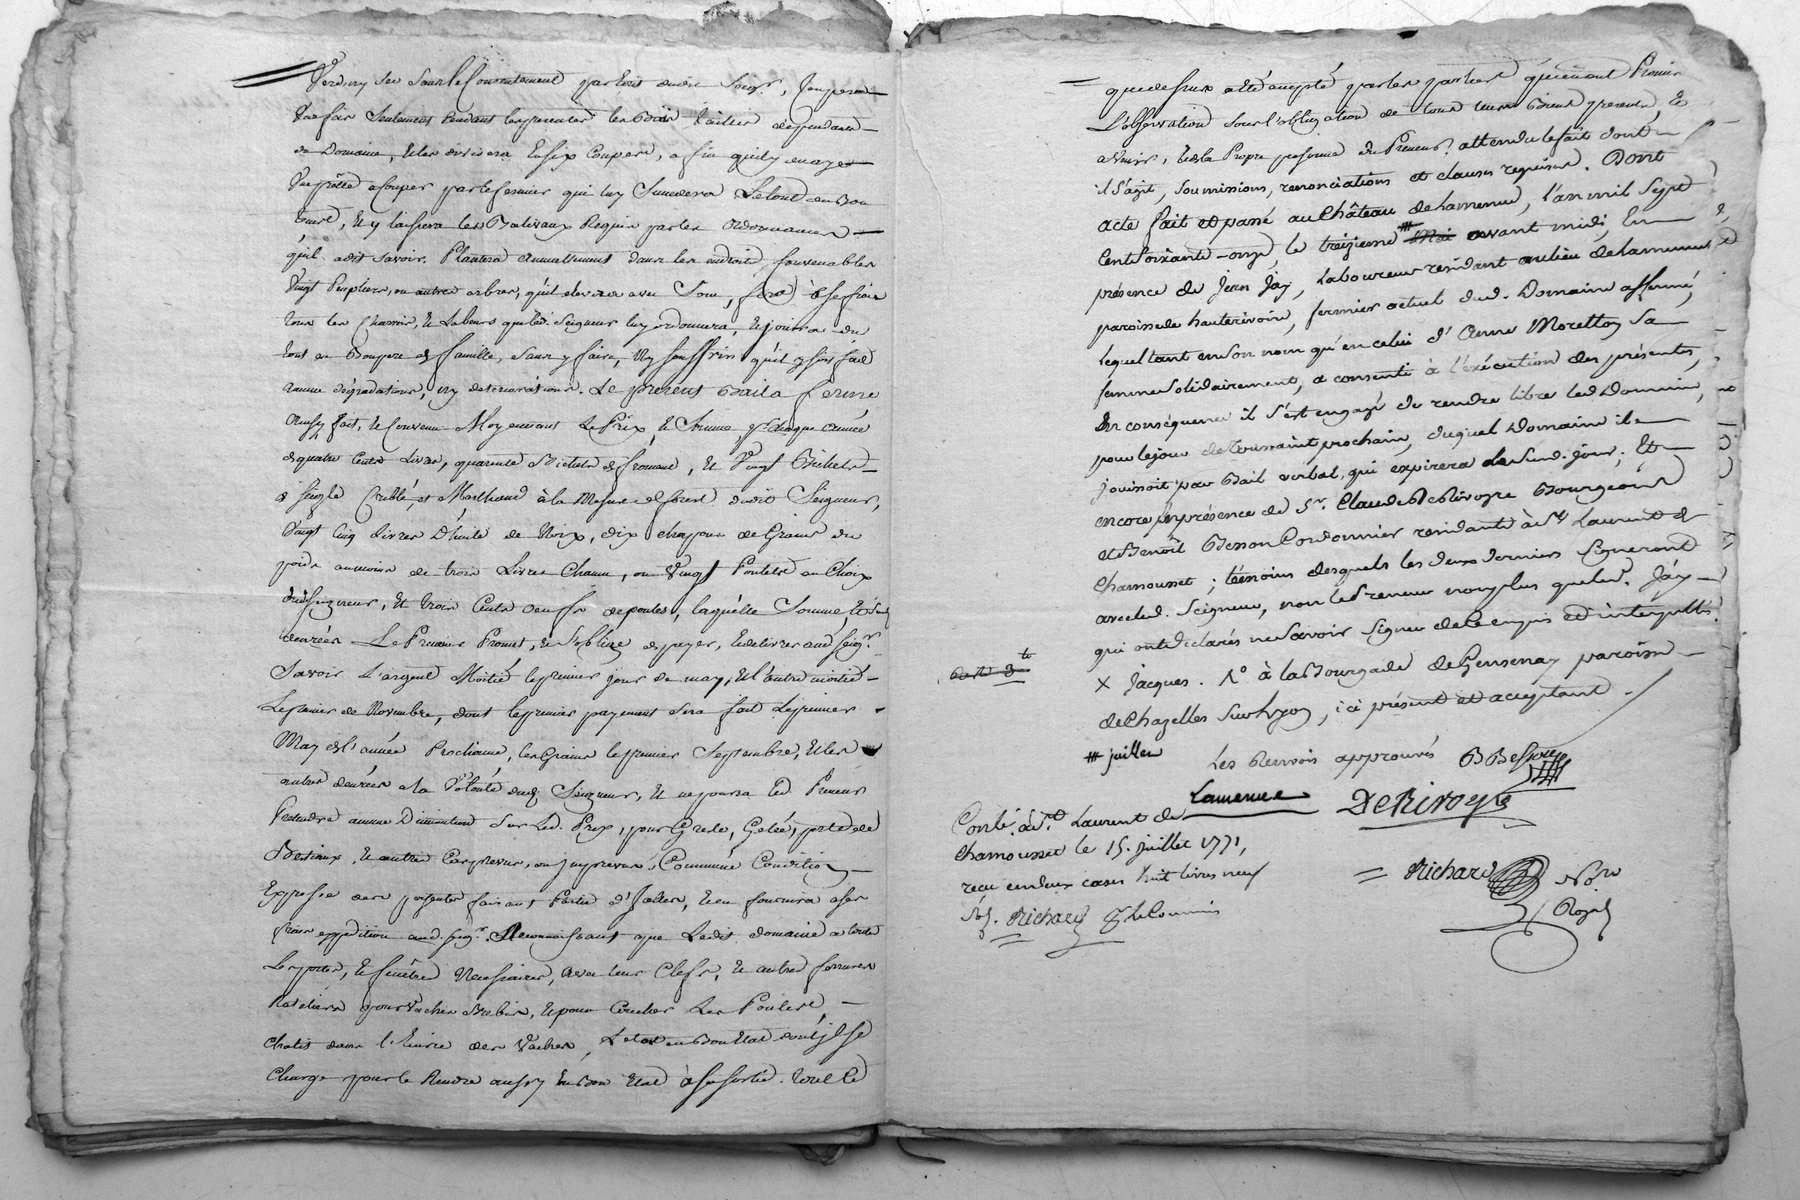 Verd ny sec sans le Consentement par écrit dudit Seigr.,
Seulement Pendant les Bois Taillis dependants
du Domaine, Et les divisera En six Coupes, afin qu'il y en aye
Une prête a Couper par le fermier qui luy Succedera Le tout
Et y laissera les Balivaux Requis par les Ordonnances
qu'il a dit savoir. Plantera Annuellement dans les endroits Convenables
Vingt Peupliers, ou autres arbres, qu'il elevera avec Soin, fera
tous les Charrois, Et Labeurs que led. Seigneur luy ordonnera, Et jouira du
tout en Bon pere de famille, Sans y faire, Ny Souffrir qu'il y soit fait
Aucune dégradations, ny deteriorations. Le present Bail a ferme
Ainsy fait, Et Convenu Moyennant Le Prix, Et Somme, pr. chaque année
de quatre Cents Livres, quarente Bichets de froment, Et Vingt Bichets
de Seigle Criblé, et Marchand à la Mesure dudit Seigneur,
Vingt Cinq Livres D'huile de Noix, dix chapons de Grains du
poids au moins de trois Livres Chacun, ou Vingt Poulets au Choix
dud. Seigneur, Et trois Cents oeufs de poules, laquelle Somme, Et
denrées Le Preneur Promet, Et S'oblige de payer, Et delivrer aud Seigr.
Savoir L'argent Moitié le premier jour de may, Et l'autre moitié
Le premier de Novembre, dont le premier payement Sera fait Le premier
May de l'année Prochaine, les Grains le premier Septembre, Et les
autres denrées a la Volonté dud. Seigneur, Et ne pourra led. Preneur
Pretendre aucune Diminution Sur Led. Prix, pour Grele, Gelée, perte de
Bestiaux, Et autres Cas prevus, ou imprevus, Comme Condition
Expresse des presentes faisant Partie d'Icelles, Et en fournira a ses
frais expedition aud Seigr. Reconnoissant que Ledit domaine a toutes
Les portes, Et fenêtres Necessaires, Avec leurs Clefs, Et autres ferrures
Rateliers pour Vaches Brebis, Et pour Coucher Les Poules,
dans l'Ecurie des Vaches, Le tout en Bon Etat dont il Se
Charge pour le Rendre aussy En Bon Etat à Sa Sortie. Tout Ce
que dessus a été accepté par les parties qui en ont Promis
L'observation Sous l'obligation de tous leurs Biens presents, Et
a venir, Et de la Propre personne du Preneur, attendu le fait dont
il S'agit, Soumissions, renonciations et clauses requises. Dont
acte fait et passé au Château de Lamenue, l'an mil Sept
Cent Soixante-onze, le treizieme # Mai avant midi, En
présence de Jean Jay, Laboureur résidant au lieu de Lamenue
paroisse de hauterivoire, fermier actuel dud. Domaine affermé,
lequel tant en Son nom qu'en celui d'Anne Moretton Sa
femme Solidairement, a consenti à l'exécution des présentes,
En conséquence il S'est engagé de rendre libre led. Domaine,
pour le jour de Toussaint prochain, duquel Domaine il
jouissoit par Bail verbal, qui expirera led. jour; Et
encore en présence de Sr. Claude DeRivoyre Bourgeois
et Benoît Besson Cordonnier residants à St Laurent de
Chamousset; témoins desquels les deux derniers Signeront
avec led. Seigneur, non le Preneur non plus que led. Jay
qui ont déclarés ne Savoir Signer de ce enquis et interpellés.
X Jacques. No à la Bourgade de Gensenay paroisse
de Chazelles Sur Lyon, ici présent et acceptant.
# juillet
Les Renvois approuvés B Besson
Lamenue DeRivoyre
Conlé. à St Laurent de
Chamousset le 15. juillet 1771,
reçu en deux cases huit livres neuf
Richard Nore
Royal
Sols. Richard pr le Commis